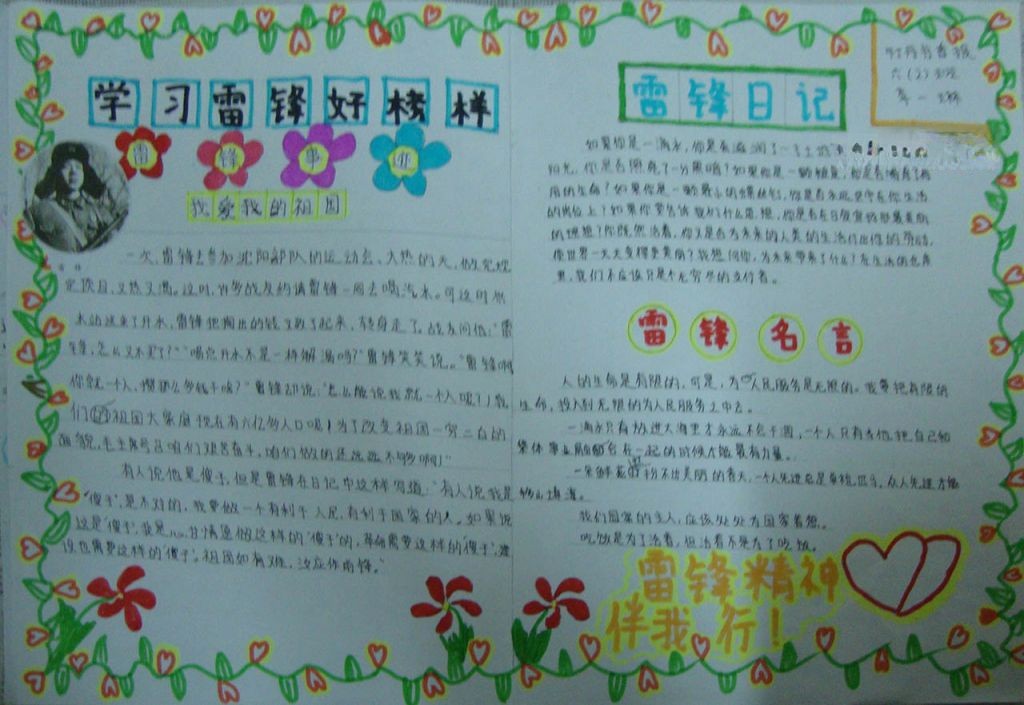 学习雷锋好榜样
雷锋事迹
我爱我的祖国
一次,雷锋去参加沈阳部队的运动会,大热的天,做完规
定项目,又热又渴。这时,许多战友约请雷锋一同去喝汽水。可这时供
水站送来了开水,雷锋把掏出的钱又放了起来,转身走了。战友问他:“雷
锋,怎么又不买了?”“喝完开水不是一样解渴吗?”雷锋笑笑说。“雷锋啊
你就一个人,攒那么多钱干啥?”雷锋却说:“怎么能说我就一个人呢?我
们的祖国大家庭现在有六亿多人口呢!为了改变祖国一穷二白的
面貌,毛主席号召咱们艰苦奋斗,咱们做的还远远不够啊!”
有人说他是傻子,但是雷锋在日记中这样写道:“有人说我是
‘傻子’,是不对的,我要做一个有利于人民,有利于国家的人。如果说
这是‘傻子’,我是甘情愿做这样的‘傻子’的,革命需要这样的‘傻子’,建
设也需要这样的‘傻子’。祖国如有难,汝应作前锋。”
雷锋日记
六(2)班
如果你是一滴水,你是否滋润了一寸土地
阳光,你是否照亮了一分黑暗?如果你是一颗粮食,你是否哺育了有
用的生命?如果你是一颗最小的螺丝钉,你是否永远坚守在你生活
的岗位上?如果你要告诉我们什么思想,你是否在日夜宣扬那最美丽
的理想?你既然活着,你又是否为未来的人类的生活付出你的劳动,
使世界一天天变得更美丽?我想问你,为未来带来了什么?在生活的仓库
里,我们不应该只是个无穷尽的支付者。
雷锋名言
人的生命是有限的,可是,为人民服务是无限的。我要把有限的
生命,投入到无限的为人民服务之中去。
一滴水只有放进大海里才永远不会干涸,一个人只有当他把自己和
集体事业融合在一起的时候才能最有力量。
一朵鲜花打扮不出美丽的春天,一个人先进总是单枪匹马,众人先进才能
够山填海。
我们国家的主人,应该处处为国家着想。
吃饭是为了活着,但活着不是为了吃饭。
雷锋精神
伴我行!